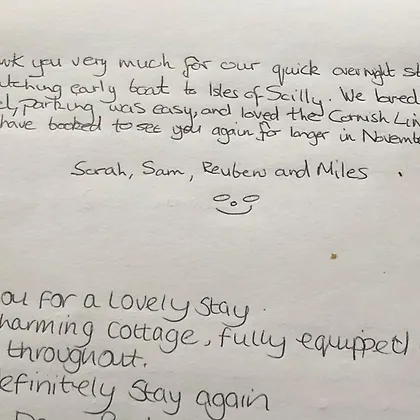 you very much for our quick overnight
early boat to Isles of Scilly. We loved
parking was easy, and loved the Cornish
have booked to see you again for longer in
Sarah, Sam, Reuben and Miles
ou for a lovely stay.
harming cottage, fully equipped
throughout.
efinitely stay again